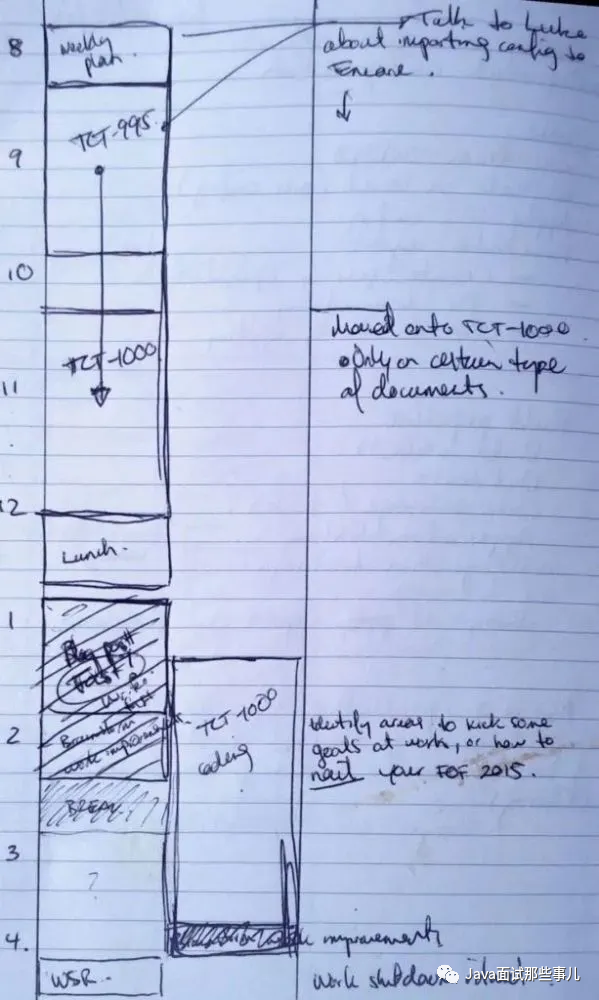 8
weekly
plan.
Talk to Luke
about importing config to
TCT-995
9
10
moved onto TCT-1000
• Only on certain type
of documents.
TCT-1000
11
12
Lunch.
1
Blog post
2
Brainstorm
work improvements
TCT-1000
coding
identify areas to kick some
goals at work, or how to
nail your FOF 2015.
BREAK
3
?
4.
improvements
WSR.
work shutdown
Java面试那些事儿